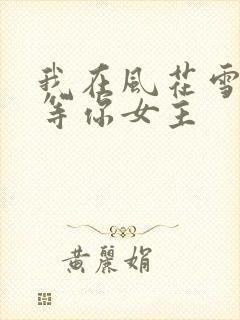 我在風花雪
等你女王
黃麗娟